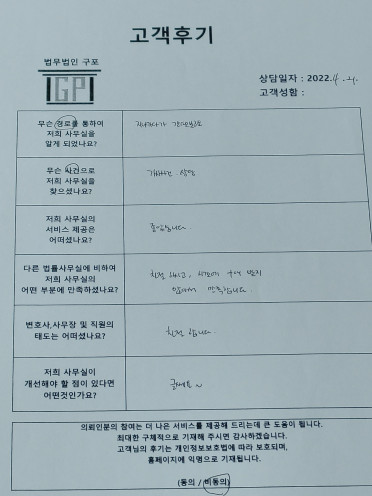 고객후기
법무법인 구포
GP
상담일자 : 2022.4.
고객성함 :
무슨 경로를 통하여
저희 사무실을
알게 되었나요?
지나가다가
무슨 사건으로
저희 사무실을
찾으셨나요?
상담
저희 사무실의
서비스 제공은
어떠셨나요?
좋았습니다
다른 법률사무실에 비하여
저희 사무실의
어떤 부분에 만족하셨나요?
친절하고,
만족합니다.
변호사,사무장 및 직원의
태도는 어떠셨나요?
친절합니다.
저희 사무실이
개선해야 할 점이 있다면
어떤것인가요?
글쎄요~
의뢰인분의 참여는 더 나은 서비스를 제공해 드리는데 큰 도움이 됩니다.
최대한 구체적으로 기재해 주시면 감사하겠습니다.
고객님의 후기는 개인정보보호법에 따라 보호되며,
홈페이지에 익명으로 기재됩니다.
(동의 / 비동의)